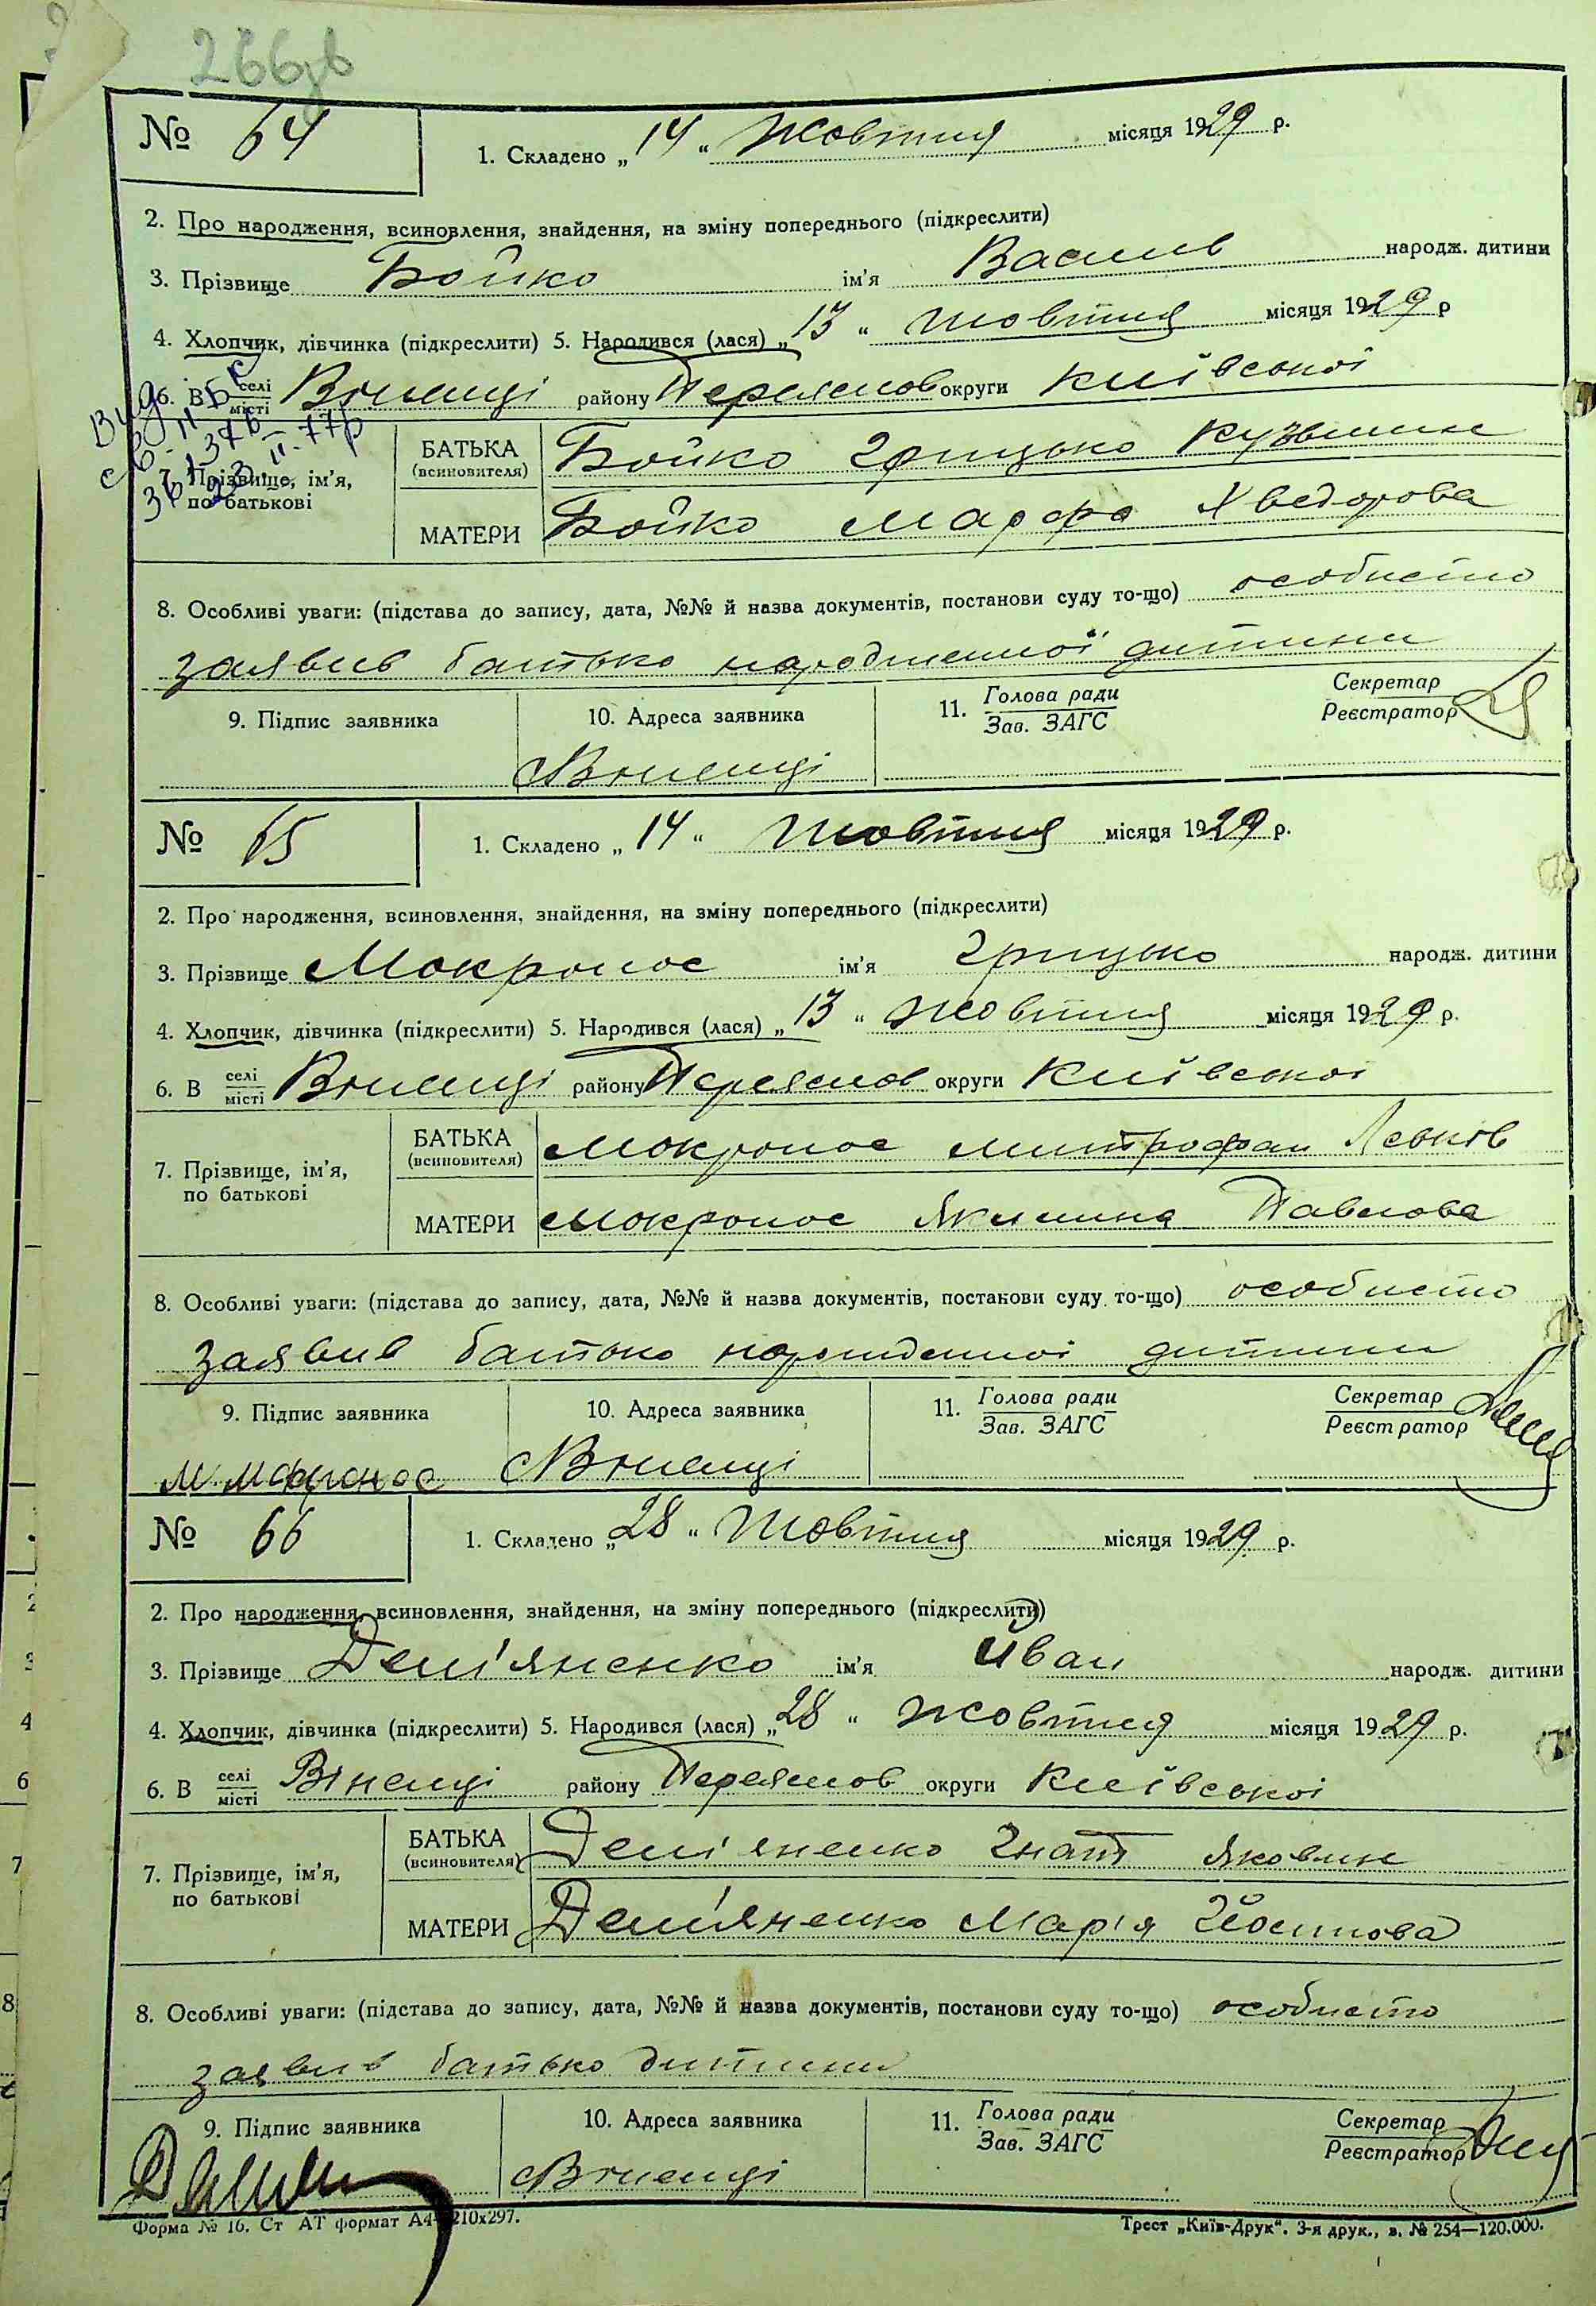 266зв
№ 64
1. Складено „14“ Жовтня місяця 1929 р.
2. Про народження, всиновлення, знайдення, на зміну попереднього (підкреслити)
3. Прізвище Бойко ім'я Василь народж. дитини
4. Хлопчик, дівчинка (підкреслити) 5. Народився (лася) „13“ Жовтня місяця 1929 р
6. В селі місті Вюнищі району Переяслов округи Київської
Прізвище, ім'я, по батькові
БАТЬКА (всиновителя) Бойко Грицько Кузьмин
МАТЕРИ Бойко Марфа Хведорова
8. Особливі уваги: (підстава до запису, дата, №№ й назва документів, постанови суду то-що) особисто
заявив батько народженної дитини
9. Підпис заявника 10. Адреса заявника 11. Голова ради Зав. ЗАГС Секретар Реєстратор
с Вюнищі
№ 65
1. Складено „14“ Жовтня місяця 1929 р.
2. Про народження, всиновлення, знайдення, на зміну попереднього (підкреслити)
3. Прізвище Мокронос ім'я Грицько народж. дитини
4. Хлопчик, дівчинка (підкреслити) 5. Народився (лася) „13“ Жовтня місяця 1929 р.
6. В селі місті Вюнищі району Переяслов округи Київської
7. Прізвище, ім'я, по батькові
БАТЬКА (всиновителя) Мокронос Митрофан Левків
МАТЕРИ Мокронос Якилина Павлова
8. Особливі уваги: (підстава до запису, дата, №№ й назва документів, постанови суду то-що) особисто
заявив батько народженної дитини
9. Підпис заявника 10. Адреса заявника 11. Голова ради Зав. ЗАГС Секретар Реєстратор
М Мокронос с Вюнищі
№ 66
1. Складено „28“ Жовтня місяця 1929 р.
2. Про народження, всиновлення, знайдення, на зміну попереднього (підкреслити)
3. Прізвище Дем'яненко ім'я Иван народж. дитини
4. Хлопчик, дівчинка (підкреслити) 5. Народився (лася) „28“ Жовтня місяця 1929 р.
6. В селі місті Вюнищі району Переяслов округи Київської
7. Прізвище, ім'я, по батькові
БАТЬКА (всиновителя) Дем'яненко Гнат Яковин
МАТЕРИ Дем'яненко Мар'я Йосипова
8. Особливі уваги: (підстава до запису, дата, №№ й назва документів, постанови суду то-що) особисто
заявив батько дитини
9. Підпис заявника 10. Адреса заявника 11. Голова ради Зав. ЗАГС Секретар Реєстратор
с Вюнищі
Форма № 16. Ст АТ формат А4—210x297.
Трест „Київ-Друк“. 3-я друк., з. № 254—120.000.